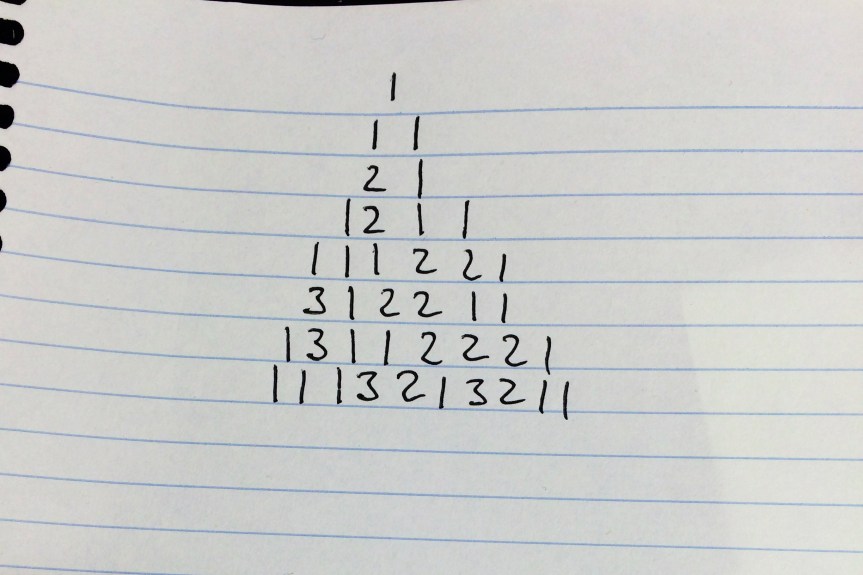 1
1 1
2 1
1 2 1 1
1 1 1 2 2 1
3 1 2 2 1 1
1 3 1 1 2 2 2 1
1 1 1 3 2 1 3 2 1 1